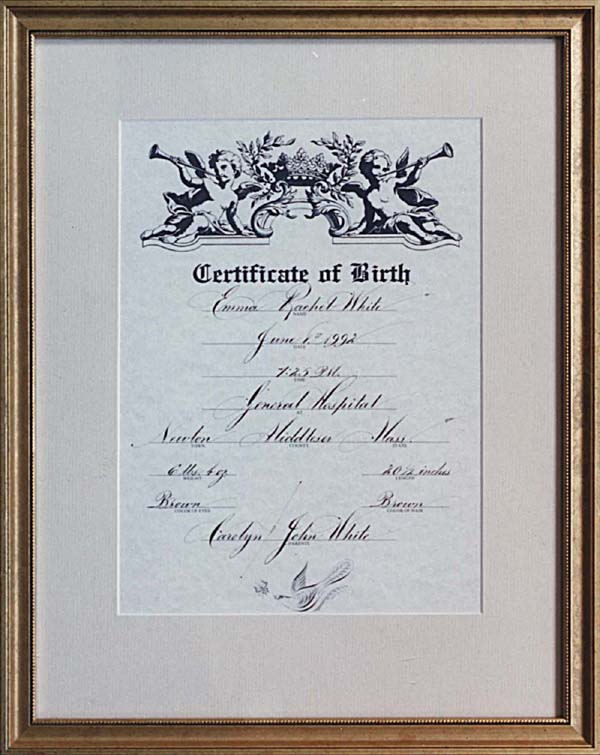 Certificate of Birth
Emma Rachel White
NAME
June 1st 1992
DATE
7:25 P.M.
TIME
General Hospital
AT
Newton Middlesex Mass.
TOWN COUNTY STATE
6 lbs. 4 oz 20 1/2 inches
WEIGHT LENGTH
Brown Brown
COLOR OF EYES COLOR OF HAIR
Carolyn & John White
PARENTS